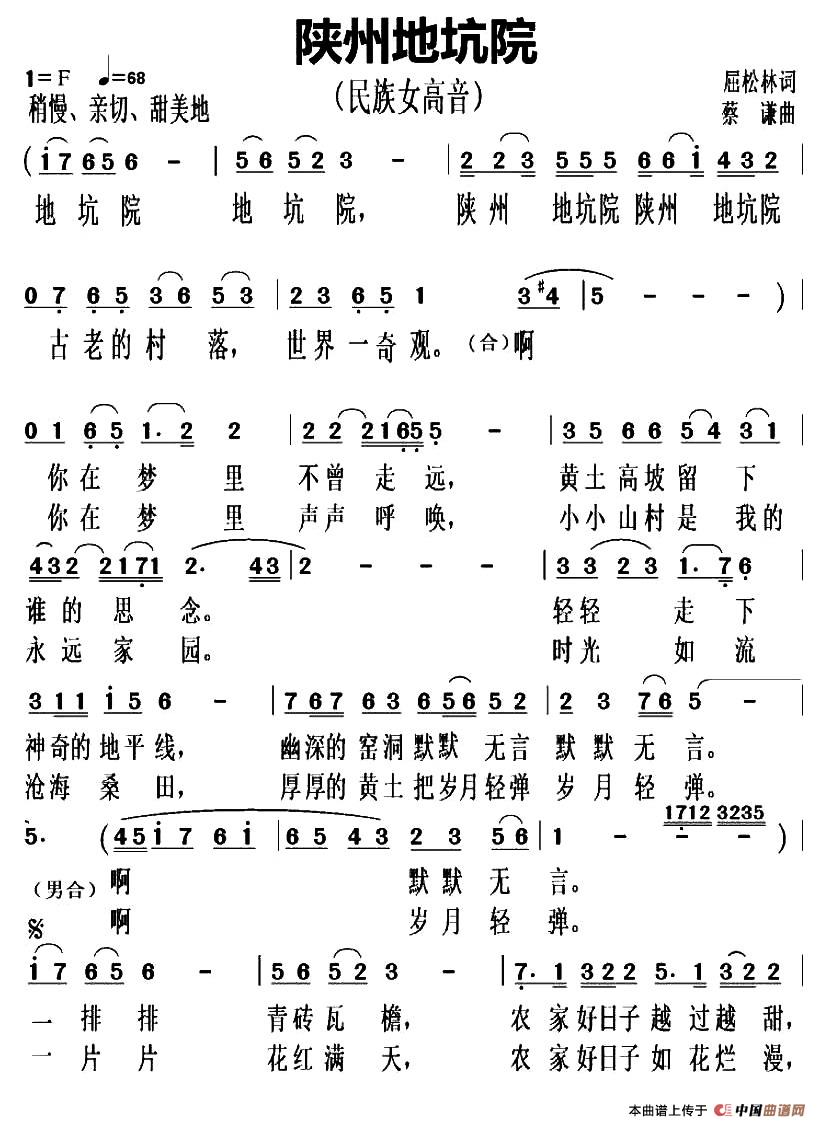 陕州地坑院
1=F ♩=68
（民族女高音）
屈松林词
稍慢、亲切、甜美地
蔡 谦曲
( i 7 6 5 6 - | 5 6 5 2 3 - | 2 2 3 5 5 5 6 6 i 4 3 2 |
地 坑 院 地 坑 院， 陕 州 地坑院 陕州 地坑院
0 7 6 5 3 6 5 3 | 2 3 6 5 1 3 #4 | 5 - - - ) |
古 老 的 村 落， 世 界 一 奇 观。（合）啊
0 1 6 5 1. 2 2 | 2 2 2 1 6 5 5 - | 3 5 6 6 5 4 3 1 |
你 在 梦 里 不 曾 走 远， 黄 土 高 坡 留 下
你 在 梦 里 声 声 呼 唤， 小 小 山 村 是 我 的
4 3 2 2 1 7 1 2. 4 3 | 2 - - - | 3 3 2 3 1. 7 6 |
谁 的 思 念。 轻 轻 走 下
永 远 家 园。 时 光 如 流
3 1 1 i 5 6 - | 7 6 7 6 3 6 5 6 5 2 | 2 3 7 6 5 - |
神奇的 地平线， 幽深的 窑洞 默默 无言 默 默 无 言。
沧海 桑 田， 厚厚的 黄土 把岁月 轻弹 岁 月 轻 弹。
1 7 1 2 3 2 3 5
5. ( 4 5 i 7 6 i | 6 5 4 3 2 3 5 6 | 1 - - - ) |
（男合）啊 默 默 无 言。
𝄋 啊 岁 月 轻 弹。
i 7 6 5 6 - | 5 6 5 2 3 - | 7. 1 3 2 2 5. 1 3 2 2 |
一 排 排 青 砖 瓦 檐， 农 家 好日子 越 过 越 甜，
一 片 片 花 红 满 天， 农 家 好日子 如 花 烂 漫，
本曲谱上传于 中国曲谱网